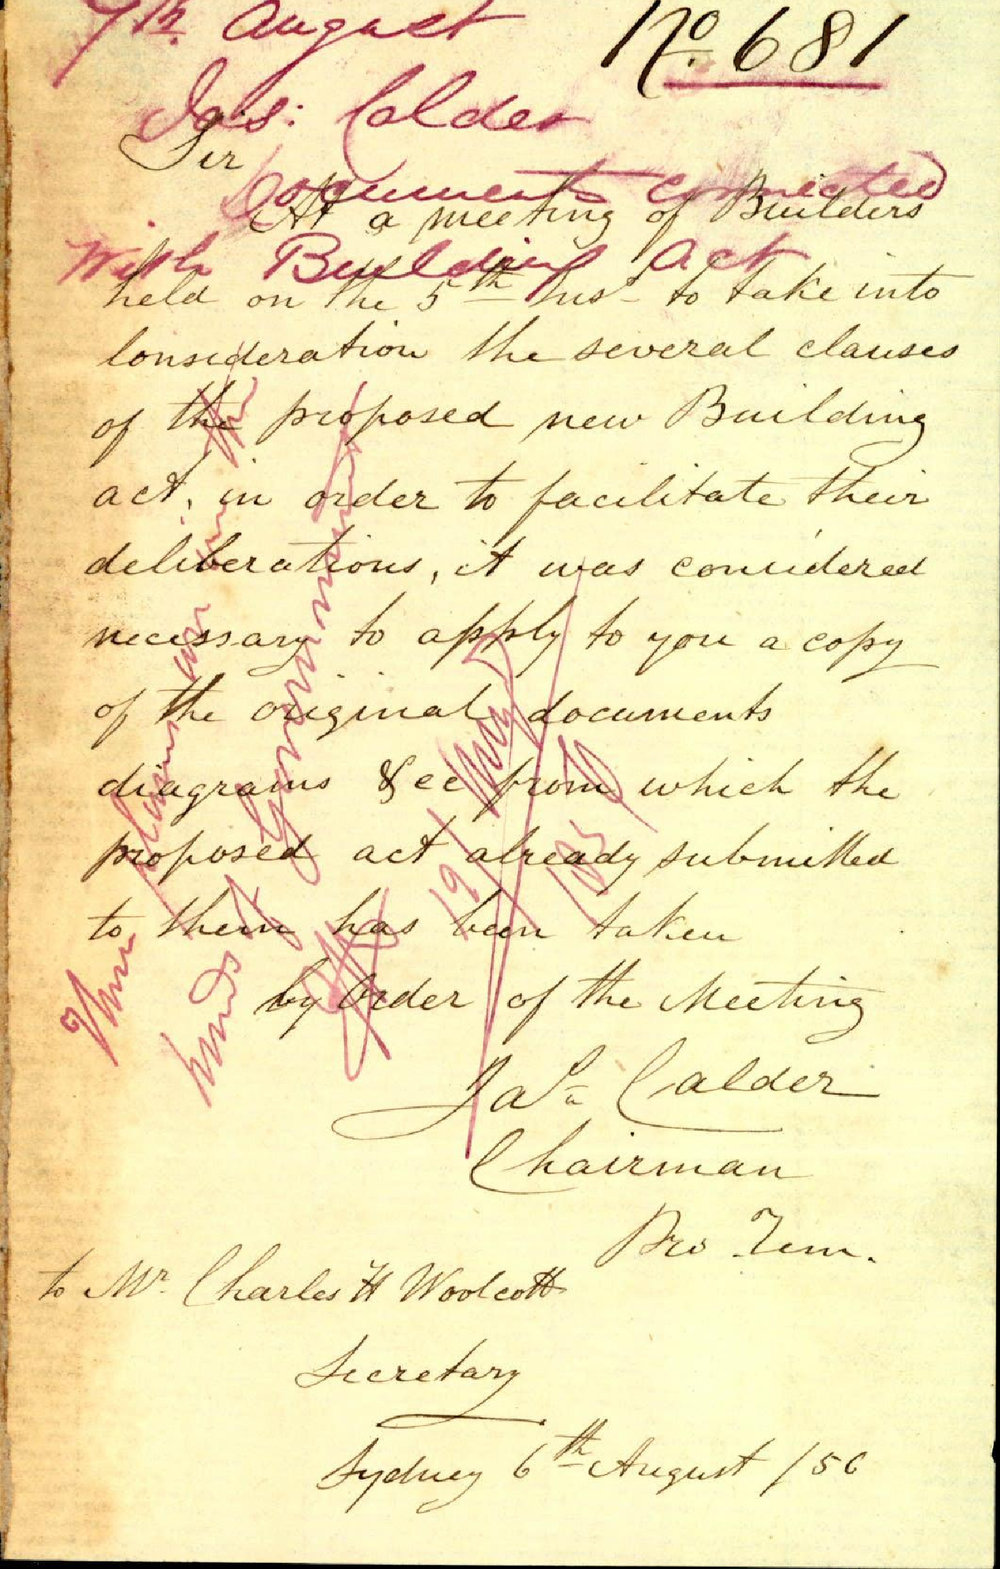 7th. August
No. 681
Jas: Calder
Sir
Documents connected
At a meeting of Builders
With Building Act
held on the 5th Inst to take into
Consideration the several clauses
of the proposed new Building
act, in order to facilitate their
deliberations, it was considered
necessary to apply to you a copy
of the original documents
diagrams &cc from which the
proposed act already submitted
to them has been taken
by Order of the Meeting
Jas Calder
Chairman
Pro Tem.
to Mr. Charles H Woolcott
Secretary
Sydney 6th August /56
in the
hands of Government
19